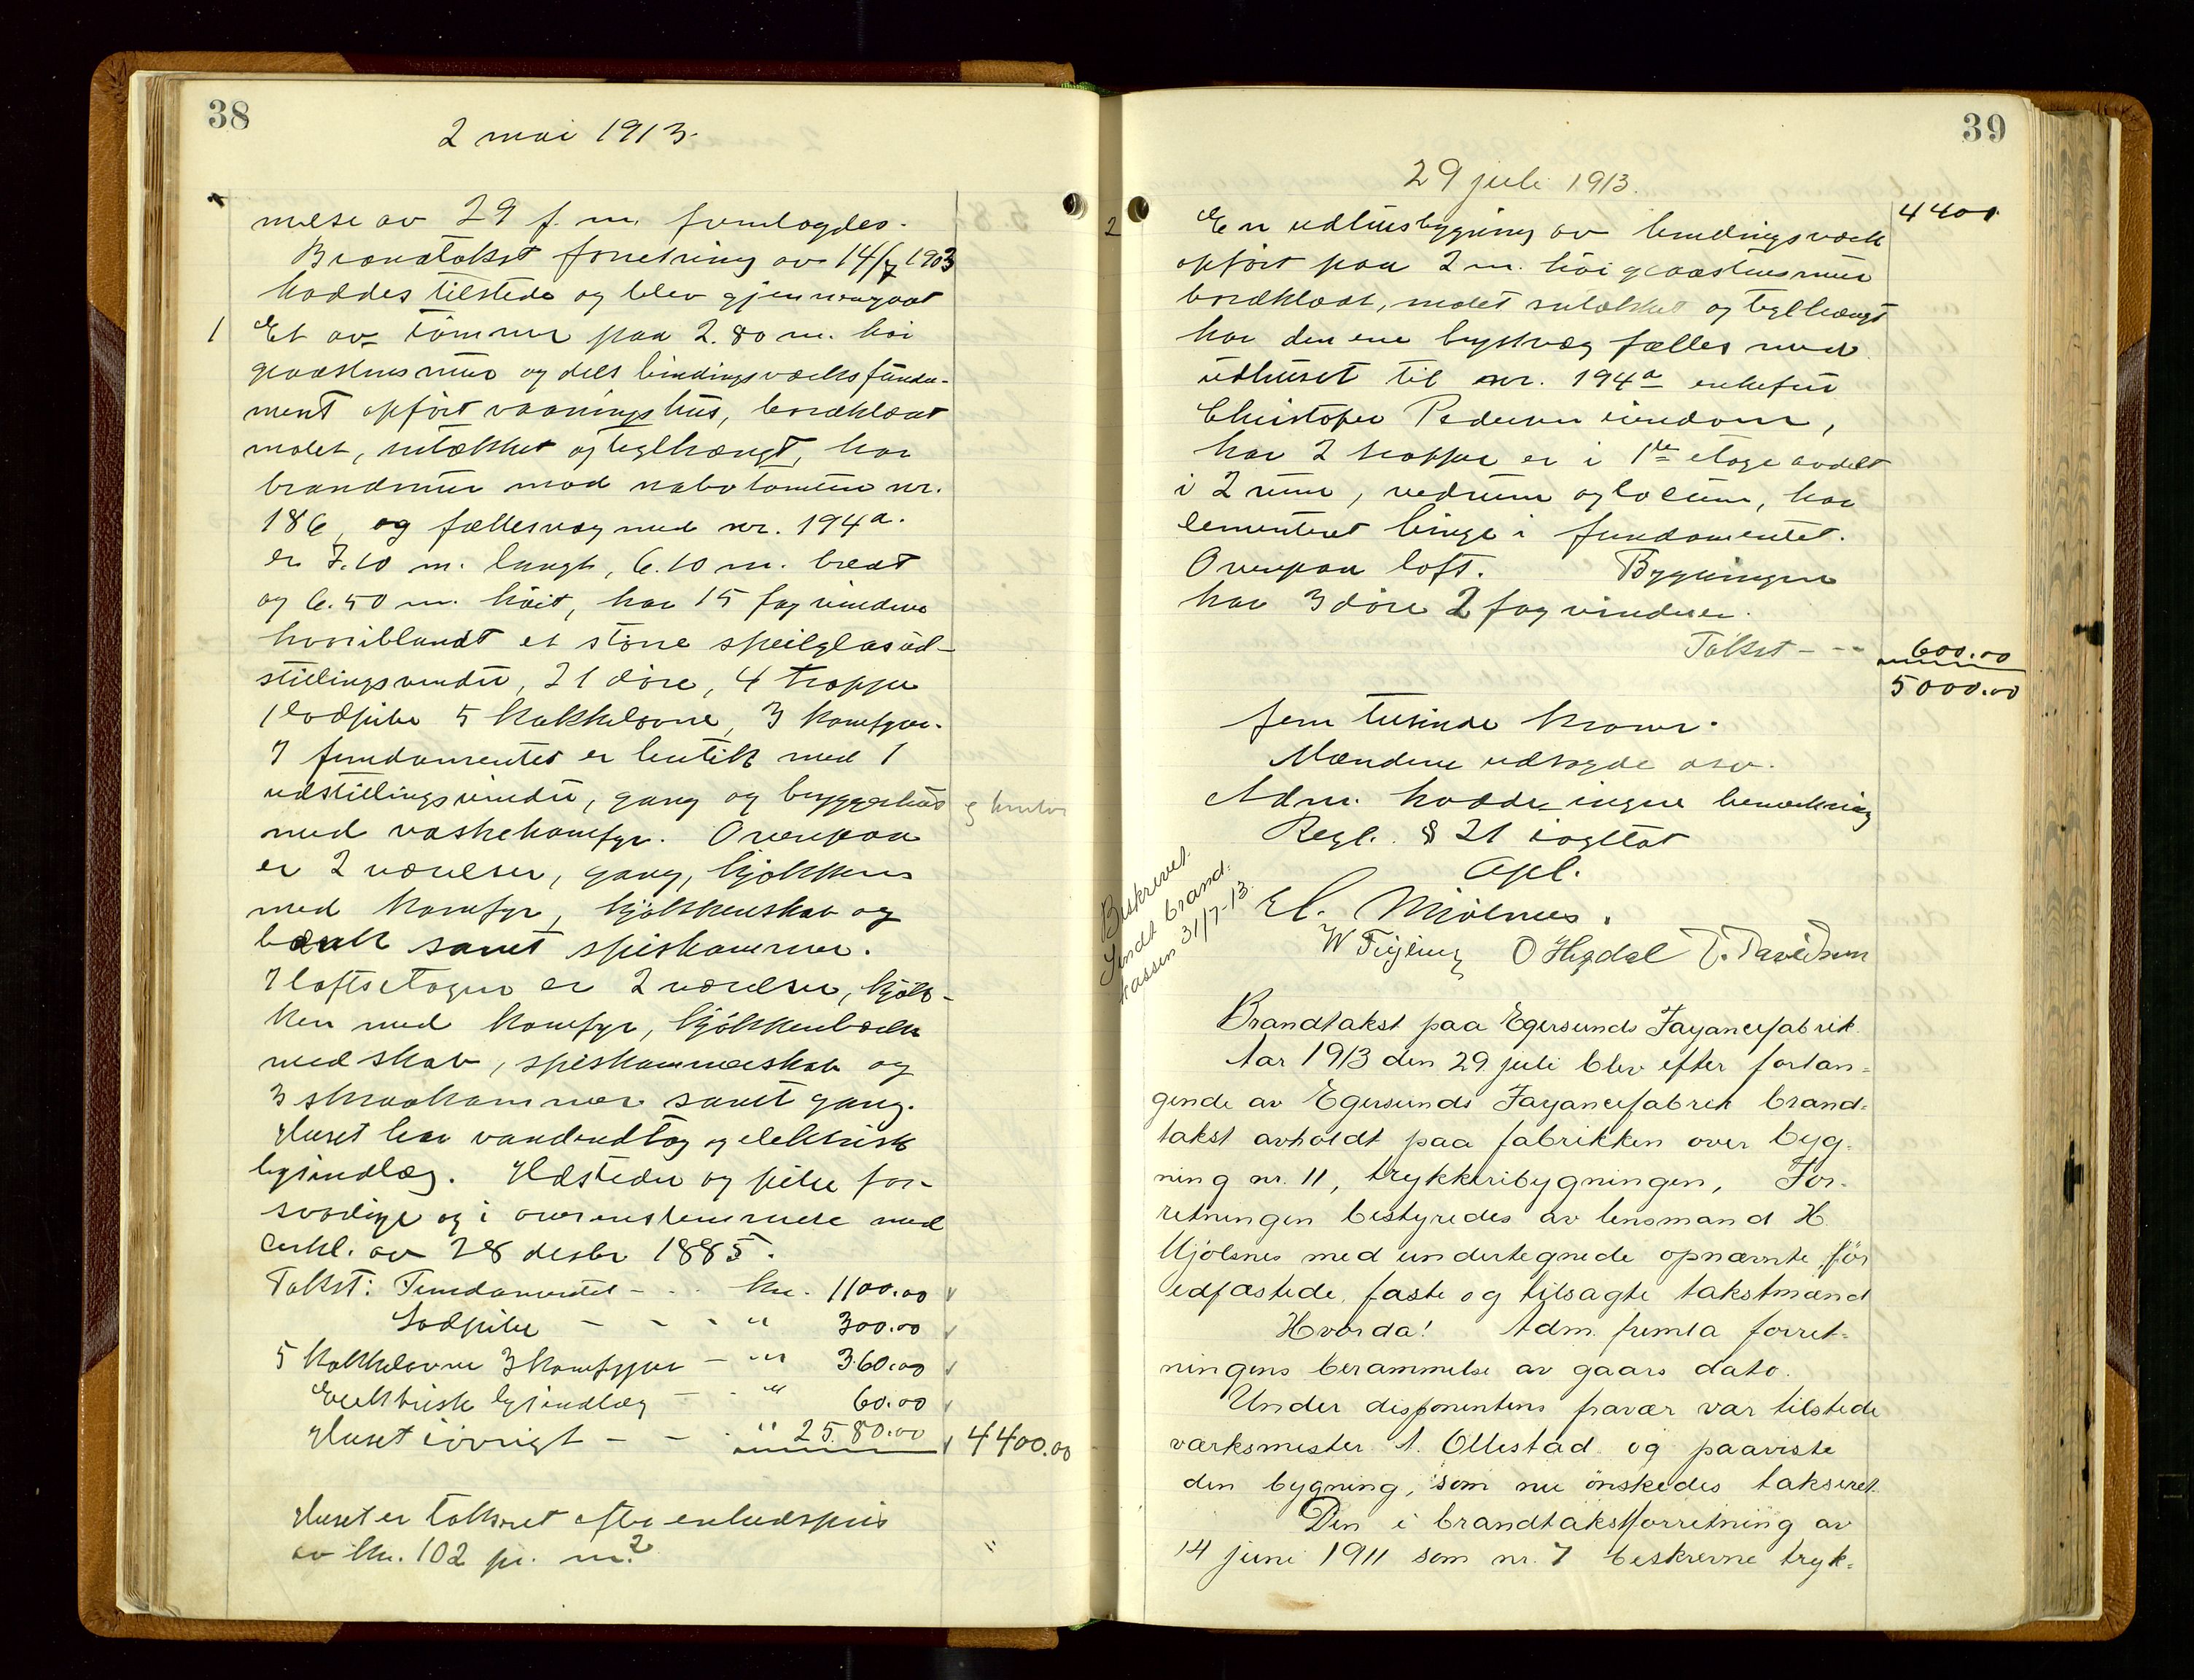 38
2 mai 1913.
melse av 29 f. m. fremlagdes.
Brandtakst forretning av 14/7 1903
haddes tilstede og blev gjennemgaat
1 Et av tömmer paa 2.80 m. höi
graastensmur og dels bindingsverks funda-
ment opfört vaaningshus, bordklædt
malet, sutækket og teglhængt, har
brandmur mod nabotomten nr.
186, og fællesvæg med nr. 194a.
er 7.10 m. langt, 6.10 m. bredt
og 6.50 m. höit, har 15 fag vinduer
hvoriblandt et större speilglasud-
stillingsvindu, 21 döre, 4 trapper
1 lodpibe 5 kakkelovne, 3 komfyrer.
I fundamentet er butik med 1
udstillingsvindu, gang og bryggerhus
med vaskekomfyr. Ovenpaa
er 2 værelser, gang, kjökken
med komfyr, kjökkenskab og
bænk samt spiskammer.
I loftsetagen er 2 værelser, kjök-
ken med komfyr, kjökkenbænk
med skab, spiskammerskab og
3 skraakammer samt gang.
Huset har vandindtag og elektrisk
lysindlæg. Ildsteder og piber for-
svarlige og i overensstemmelse med
cirkl. av 28 desbr 1885.
Takst: Fundamentet - - - kr. 1100.00
Lodpibe - - - " 300.00
5 kakkelovne 3 komfyrer - " 360.00
Elektrisk lysindlæg - - " 60.00
Huset iövrigt - - " 2580.00 4400.00
Huset er takseret efter enhedspris
av kr. 102 pr. m.2
39
29 juli 1913.
4400
2 En udhusbygning av bindingsverk
opfört paa 2 m. höi graastensmur
bordklædt, malet sutækket og teglhængt
har den ene langvæg fælles med
udhuset til nr. 194a enkefru
Christofer Pedersen eiendom,
har 2 trapper er i 1ste etage avdelt
i 2 rum, vedrum og locum, har
cementeret binge i fundamentet.
Ovenpaa loft. Bygningen
har 3 döre 2 fag vinduer.
Takst - - - 600.00
5000.00
fem tusinde kroner.
Mændene udsagde osv.
Adm. hadde ingen bemerkning
Regl. § 21 iagttat
Opl.
H. Mjölsnes.
W Fuglung O Hegdal T. Davidsen
Beskrevet.
Sendt brand-
kassen 31/7-13.
Brandtakst paa Egersunds Fayancefabrik.
Aar 1913 den 29 juli blev efter forlan-
gende av Egersunds Fayancefabrik brand-
takst avholdt paa fabrikken over byg-
ning nr. 11, trykkeribygningen, For-
retningen bestyredes av lensmand H.
Mjölsnes med undertegnede opnævnte, för
edfæstede, faste og tilsagte takstmænd
Hvorda! Adm. fremla forret-
ningens berammelse av gaars dato.
Under disponentens fravær var tilstede
værksmester A. Ollestad og paaviste
den bygning, som nu önskedes takseret.
Den i brandtakstforretning av
14 juni 1911 som nr. 7 beskrevne tryk-